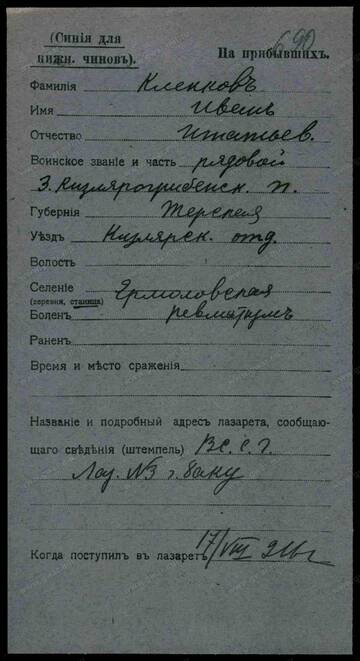 (Синія для
нижн. чиновъ).
На прибывшихъ.
690
Фамилія Клепковъ
Имя Иванъ
Отчество Игнатьев.
Воинское званіе и часть рядовой
3. Кизляро-гребенск. п.
Губернія Терская
Уѣздъ Кизлярск. отд.
Волость
Селеніе Ермоловская
(деревня, станица)
Боленъ ревматизмъ
Раненъ
Время и мѣсто сраженія
Названіе и подробный адресъ лазарета, сообщаю-
щаго свѣдѣнія (штемпель) В.С.С.Г.
Лаз. №3 г. Баку
Когда поступилъ въ лазаретъ 17/VIII 916 г